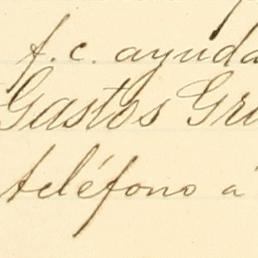 f. c. ayuda
Gastos Gr
teléfono á